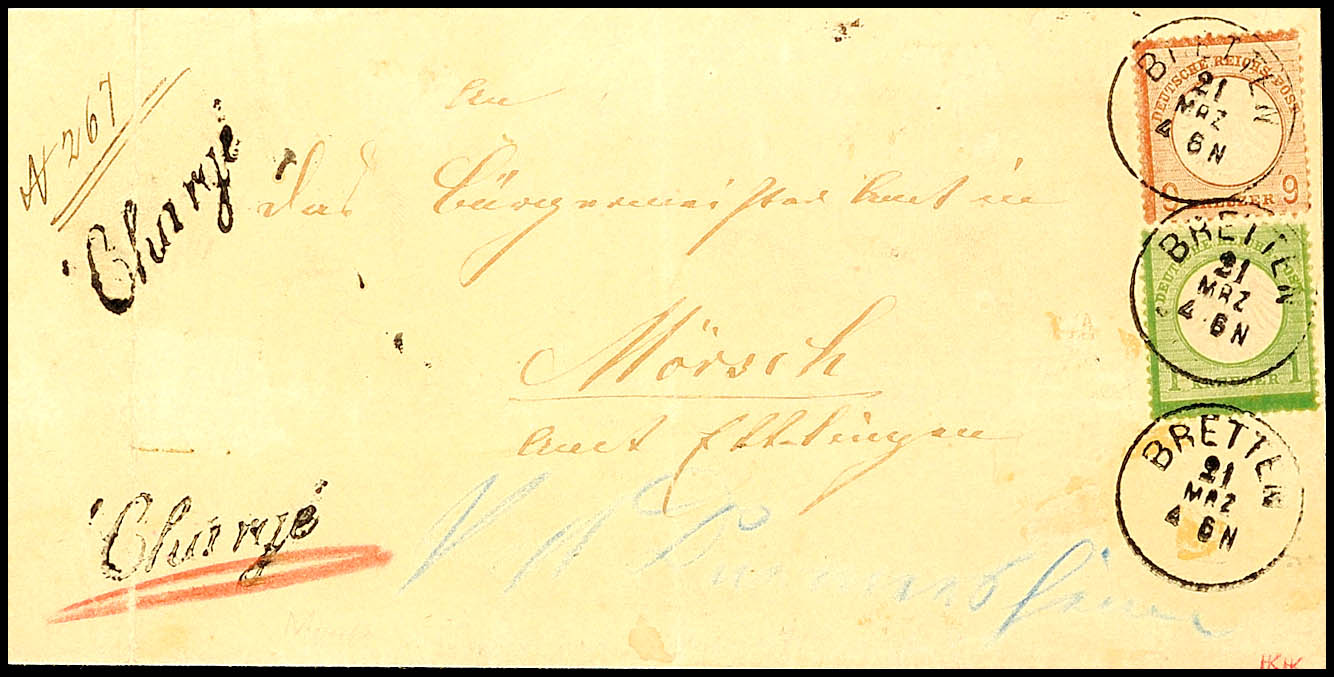 № 267
Chargé
An
Das Bürgermeister Amt in
Mörsch
Amt Ettlingen
Chargé
BRETTEN
21
MRZ
4 6 N
DEUTSCHE REICHS-POST
9 KREUZER 9
BRETTEN
21
MRZ
4 6 N
DEUTSCHE REICHS-POST
1 KREUZER 1
BRETTEN
21
MRZ
4 6 N